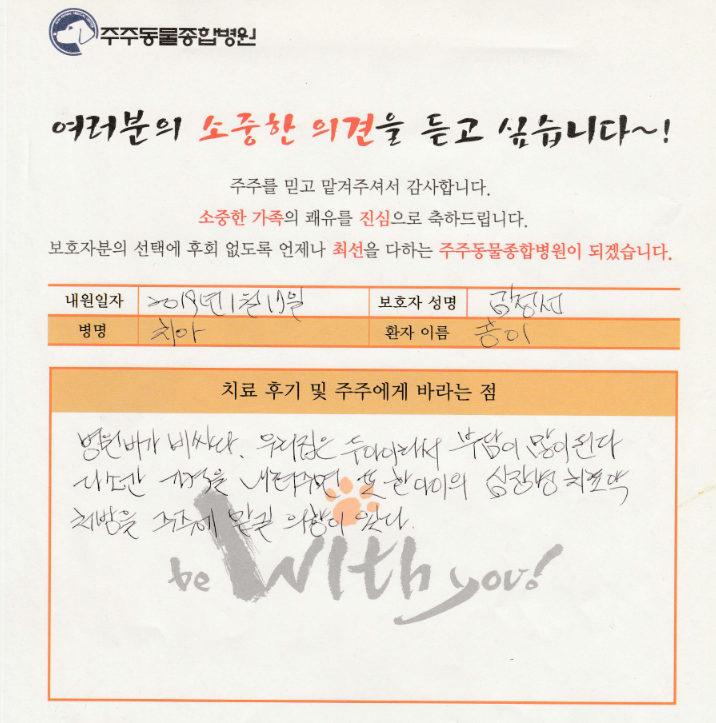 주주동물종합병원
여러분의 소중한 의견을 듣고 싶습니다~!
주주를 믿고 맡겨주셔서 감사합니다.
소중한 가족의 쾌유를 진심으로 축하드립니다.
보호자분의 선택에 후회 없도록 언제나 최선을 다하는 주주동물종합병원이 되겠습니다.
내원일자 2019년 1월 17일 보호자 성명
병명 치아 환자 이름 퐁이
치료 후기 및 주주에게 바라는 점
병원비가 비싸다. 우리집은 두마리라서 부담이 많이된다
가격을 내려주면 또 한마리의 심장병 치료약
처방을 주주에 맡길 의향이 있다.
be With you!